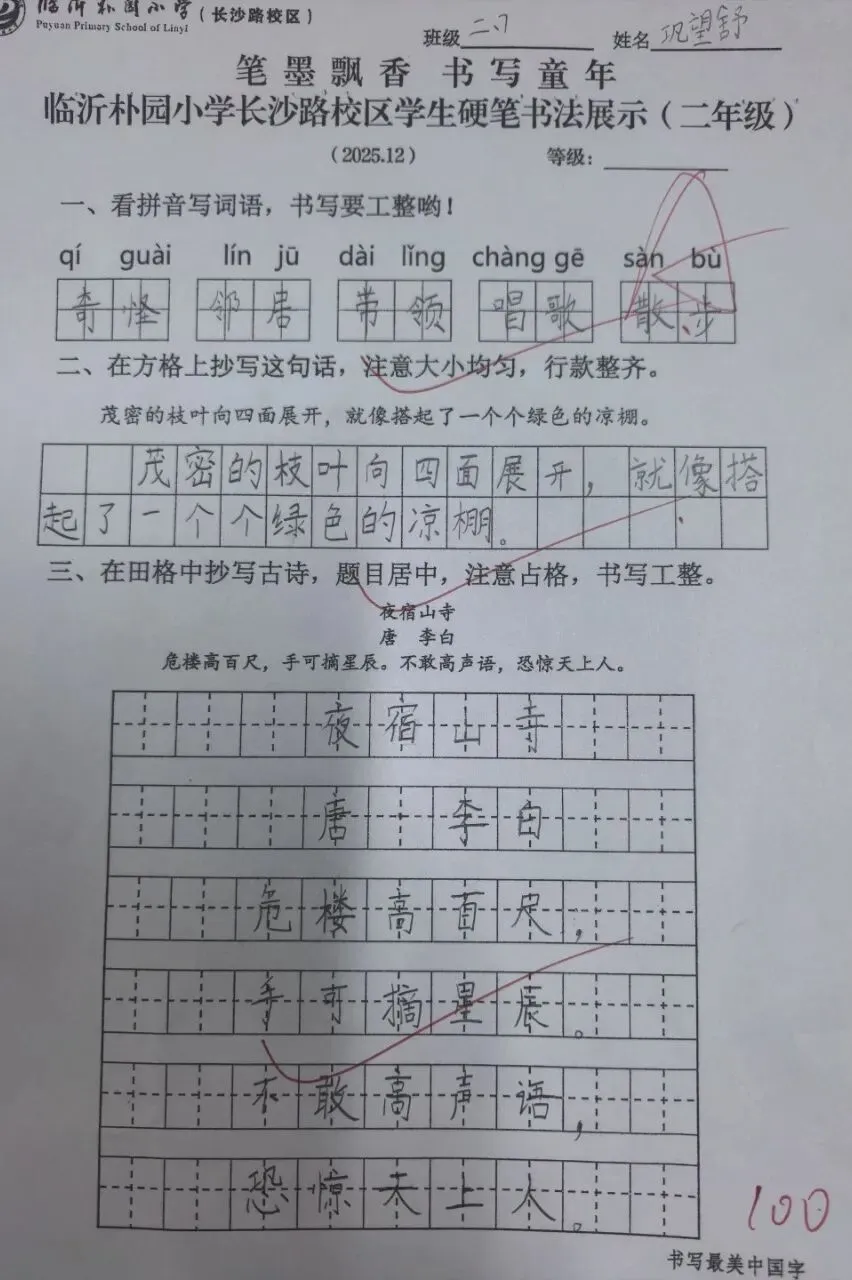 临沂朴园小学（长沙路校区）
Puyuan Primary School of Linyi
班级 二.7 姓名 巩望舒
笔墨飘香 书写童年
临沂朴园小学长沙路校区学生硬笔书法展示（二年级）
（2025.12） 等级：
一、看拼音写词语，书写要工整哟！
qí guài lín jū dài lǐng chàng gē sàn bù
奇怪 邻居 带领 唱歌 散步
二、在方格上抄写这句话，注意大小均匀，行款整齐。
茂密的枝叶向四面展开，就像搭起了一个个绿色的凉棚。
茂密的枝叶向四面展开，就像搭
起了一个个绿色的凉棚。
三、在田格中抄写古诗，题目居中，注意占格，书写工整。
夜宿山寺
唐 李白
危楼高百尺，手可摘星辰。不敢高声语，恐惊天上人。
夜宿山寺
唐 李白
危楼高百尺，
手可摘星辰。
不敢高声语，
恐惊天上人。
100
书写最美中国字